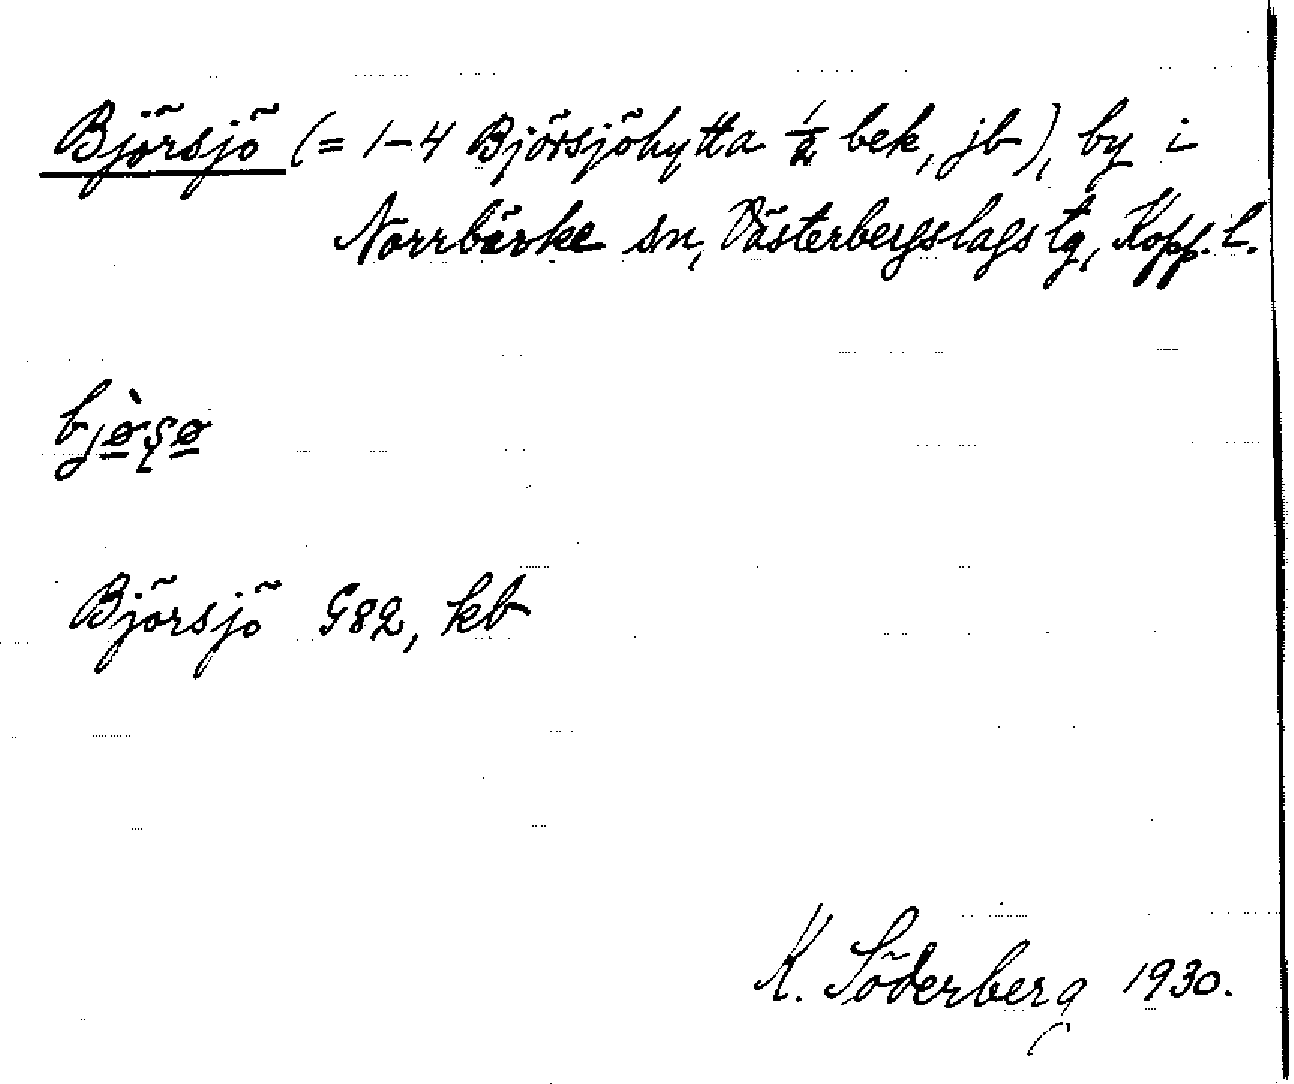 Björsjö (= 1-4 Björsjöhytta ½ bek, jb), by i
Norrbärke sn, Västerbergslags tg, Kopp. l.
bjø̀ʂø
Björsjö G82, kb
K. Söderberg 1930.